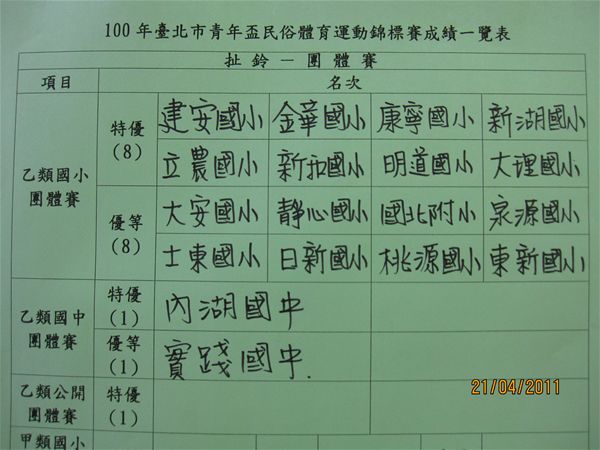 100年臺北市青年盃民俗體育運動錦標賽成績一覽表
扯鈴－團體賽
項目 名次
乙類國小團體賽
特優(8)
建安國小 金華國小 康寧國小 新湖國小
立農國小 新和國小 明道國小 大理國小
優等(8)
大安國小 靜心國小 國北附小 泉源國小
士東國小 日新國小 桃源國小 東新國小
乙類國中團體賽
特優(1) 內湖國中
優等(1) 實踐國中.
乙類公開團體賽
特優(1)
甲類國小
21/04/2011